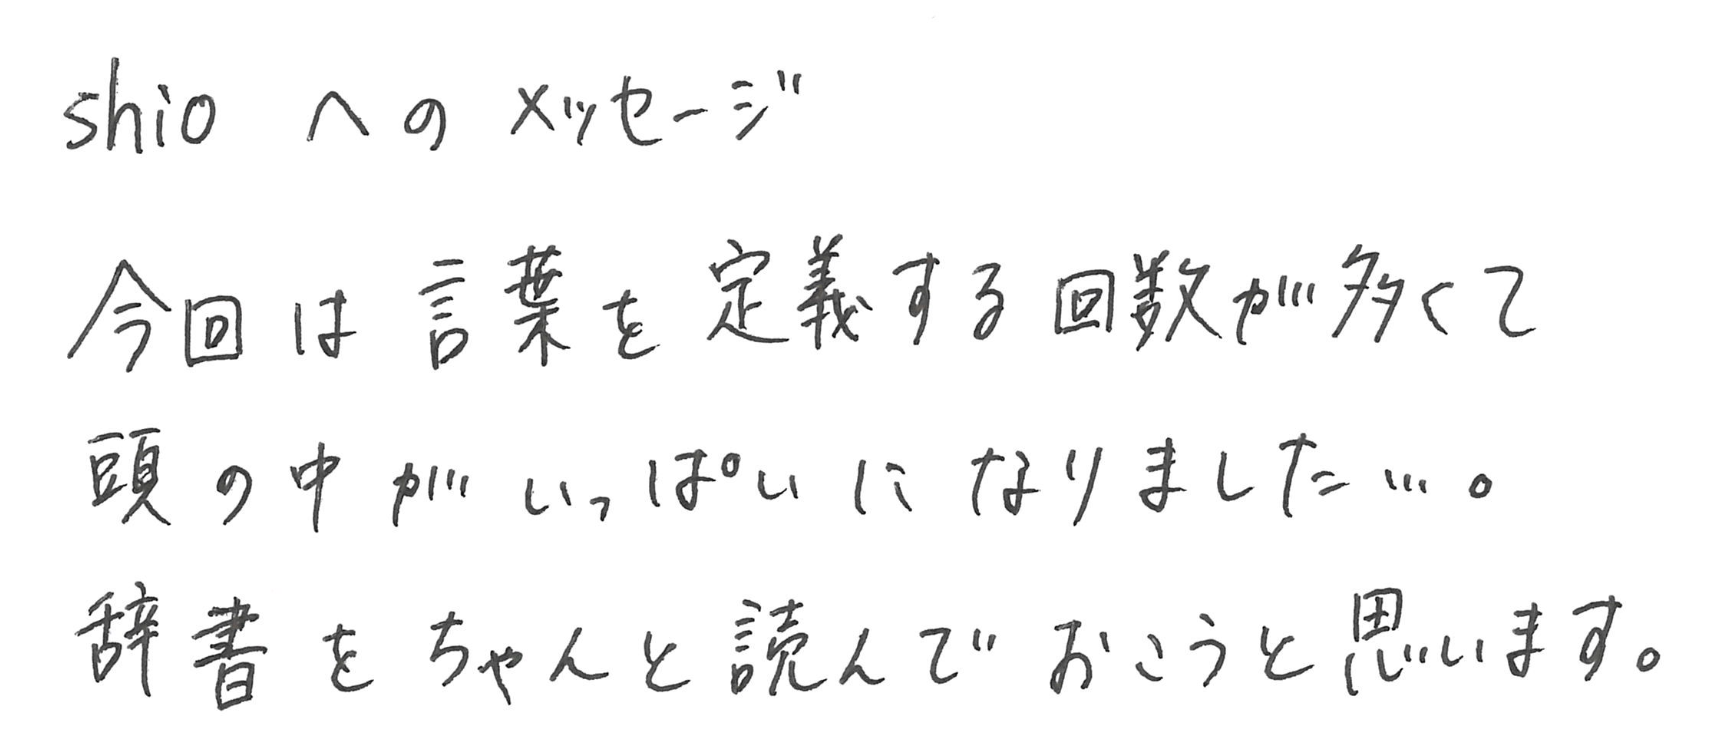 shio へのメッセージ
今回は言葉を定義する回数が多くて
頭の中がいっぱいになりました…。
辞書をちゃんと読んでおこうと思います。